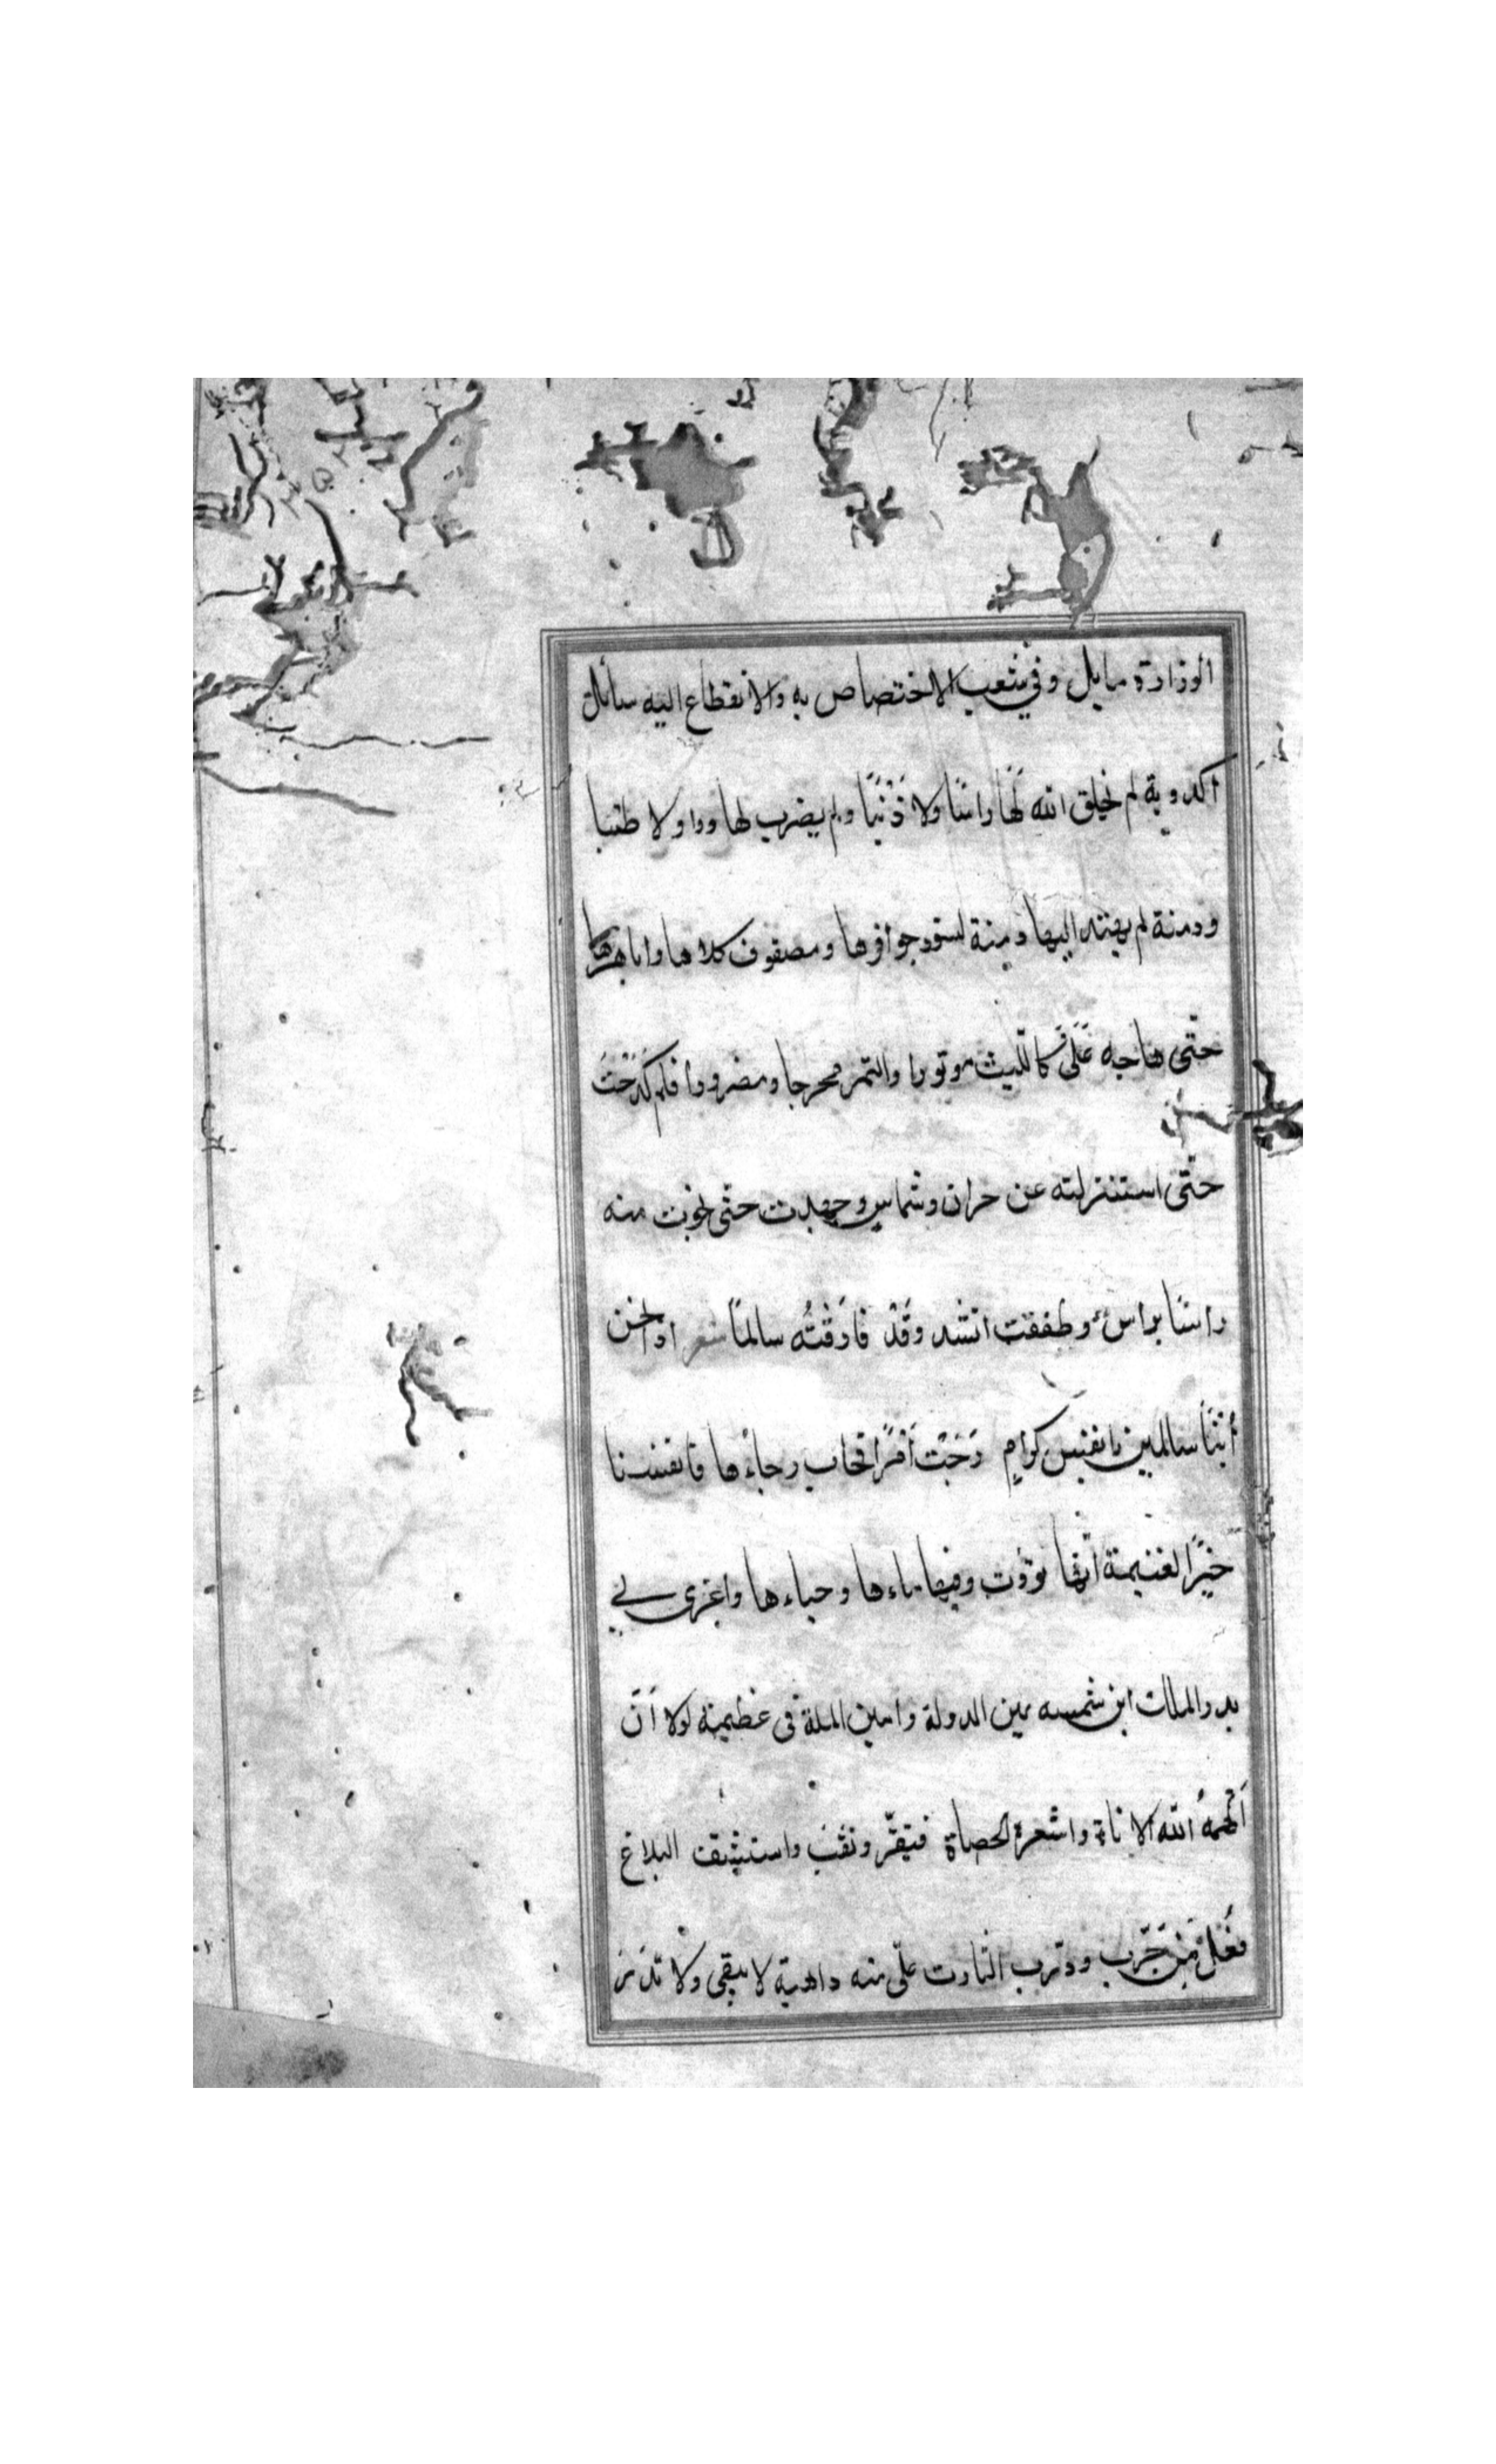 الوزارة مايل وفي شعب الاختصاص به والانقطاع اليه سائل
اكذوبة لم يخلق الله لها راسًا ولا ذَنَبًا ولم يضرب لها وا ولا طنبا
ودمنة لم يهتد اليها دمنة لسود حوافرها ومصقوف كلاها واباهرها
حتّى هاجه عَلَىَّ كاللّيث موتورا والنمر محرجا ومضرورا فلم كَدَحْتُ
حتّى استنزلته عن حران وشماس وجهدت حتّى نجوت منه
راسًا براس وطفقت انشد وَقَدْ فَارَقْتُه سالمًا شعر اذا نحن
أبْنَا سالمين بانفس كرامٍ رَجَت اَمْرًا فخاب رجاءُها فانفسنا
خَيْرُ الغنيمة انّها توؤب وفيها ماءها وحياءها واغرى بي
بدر الملك ابن شمسه يمين الدولة وامين الملة فى عظيمة لولا اَنّ
اَلْهمهُ الله الاناة واشعره الحصاة فتيقّر ونقّب واستثبت البلاغ
فعْلَ مَن جَرّب ودرب لثارت علّى منه داهية لا تبقى ولا تَذَر